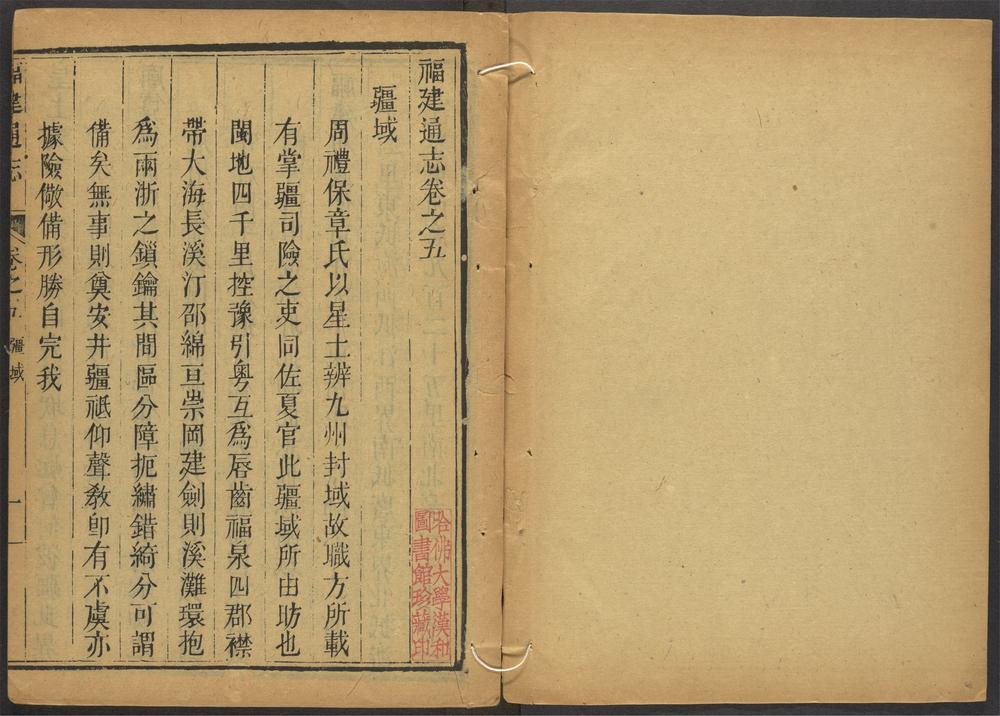 福建通志卷之五
疆域
周禮保章氏以星土辨九州封域故職方所載
有掌疆司險之吏同佐夏官此疆域所由昉也
閩地四千里控豫引粵互爲唇齒福泉四郡襟
帶大海長溪汀邵綿亘崇岡建劍則溪灘環抱
爲兩浙之鎖鑰其間區分障扼繡錯綺分可謂
備矣無事則奠安井疆祗仰聲敎卽有不虞亦
據險儆備形勝自完我
福建通志
卷之五
疆域
一
哈佛大學漢和
圖書館珍藏印